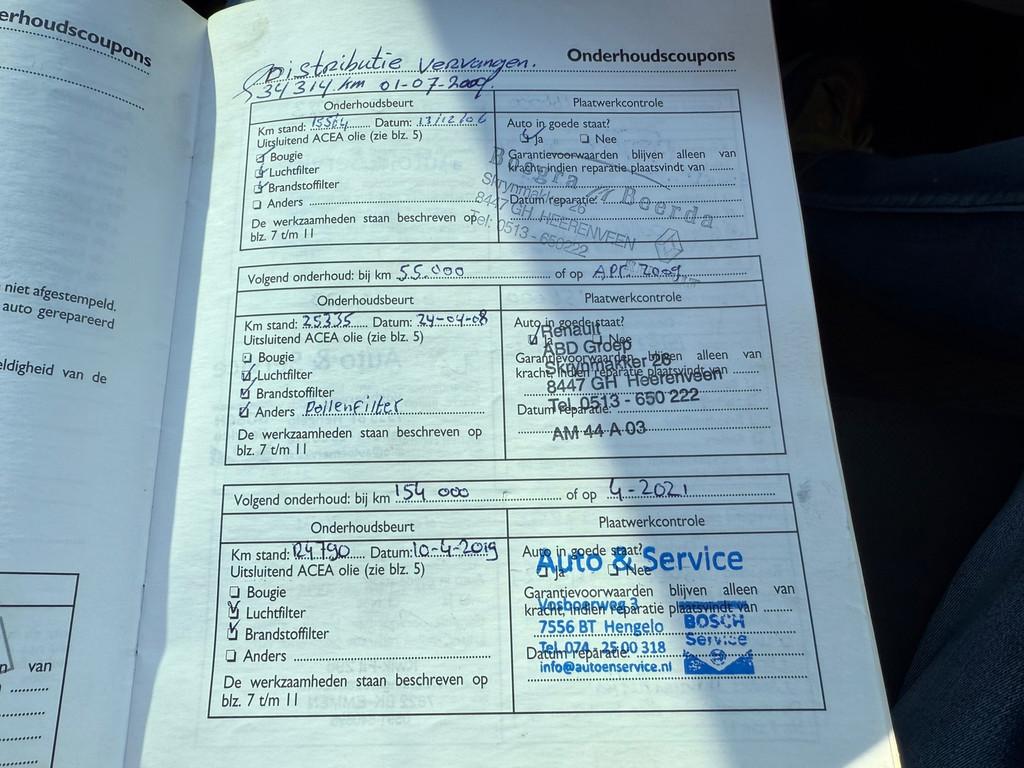 erhoudscoupons
niet afgestempeld.
auto gerepareerd
ldigheid van de
van
Onderhoudscoupons
Distributie vervangen.
34314 km 01-07-2009.
Onderhoudsbeurt
Plaatwerkcontrole
Km stand: Datum: 13/12/06
Uitsluitend ACEA olie (zie blz. 5)
Bougie
Luchtfilter
Brandstoffilter
Anders
De werkzaamheden staan beschreven op
blz. 7 t/m 11
Auto in goede staat?
Ja Nee
Garantievoorwaarden blijven alleen van
kracht, indien reparatie plaatsvindt van
Datum reparatie:
Boegra Beerda
Skrynmakker 26
8447 GH HEERENVEEN
Tel: 0513 - 650222
Volgend onderhoud: bij km 55.000 of op Apr. 2009
Onderhoudsbeurt
Plaatwerkcontrole
Km stand: 25335 Datum: 24-04-08
Uitsluitend ACEA olie (zie blz. 5)
Bougie
Luchtfilter
Brandstoffilter
Anders Pollenfilter
De werkzaamheden staan beschreven op
blz. 7 t/m 11
Auto in goede staat?
Ja Nee
Garantievoorwaarden blijven alleen van
kracht, indien reparatie plaatsvindt van
Datum reparatie:
Renault
ABD Groep
Skrynmakker 26
8447 GH Heerenveen
Tel. 0513 - 650 222
AM 44 A 03
Volgend onderhoud: bij km 154 000 of op 4-2021
Onderhoudsbeurt
Plaatwerkcontrole
Km stand: 124790 Datum: 10-4-2019
Uitsluitend ACEA olie (zie blz. 5)
Bougie
Luchtfilter
Brandstoffilter
Anders
De werkzaamheden staan beschreven op
blz. 7 t/m 11
Auto in goede staat?
Ja Nee
Garantievoorwaarden blijven alleen van
kracht, indien reparatie plaatsvindt van
Datum reparatie:
Auto & Service
Vosboerweg 3
7556 BT Hengelo
Tel. 074 - 25 00 318
info@autoenservice.nl
BOSCH
Service